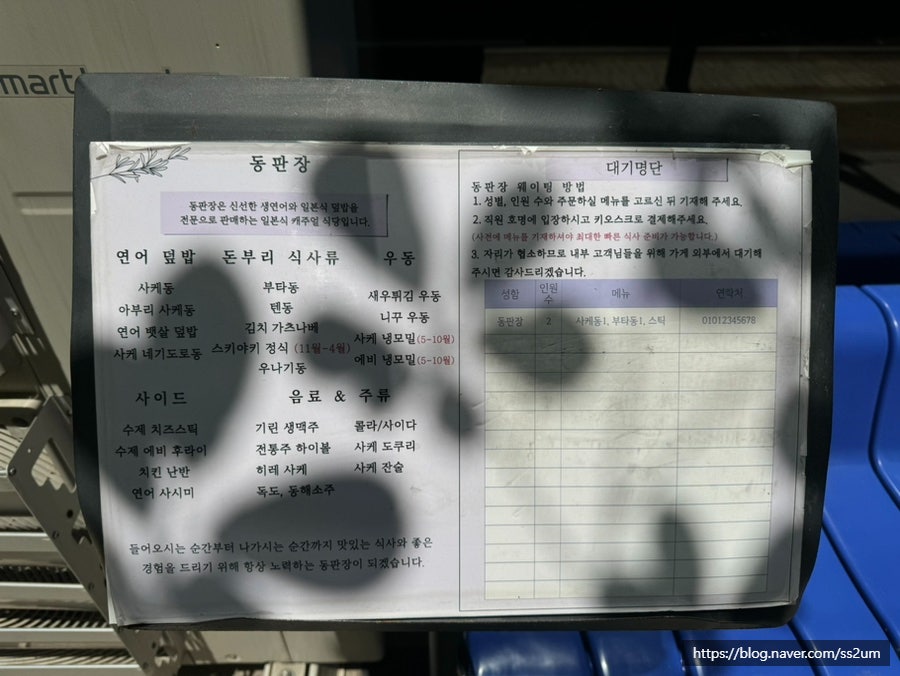 mart
동판장
동판장은 신선한 생연어와 일본식 덮밥을
전문으로 판매하는 일본식 캐주얼 식당입니다.
연어 덮밥
사케동
아부리 사케동
연어 뱃살 덮밥
사케 네기도로동
돈부리 식사류
부타동
텐동
김치 가츠나베
스키야키 정식 (11월~4월)
우나기동
우동
새우튀김 우동
니꾸 우동
사케 냉모밀(5~10월)
에비 냉모밀(5~10월)
사이드
수제 치즈스틱
수제 에비 후라이
치킨 난반
연어 사시미
음료 & 주류
기린 생맥주
전통주 하이볼
히레 사케
독도, 동해소주
콜라/사이다
사케 도쿠리
사케 잔술
들어오시는 순간부터 나가시는 순간까지 맛있는 식사와 좋은
경험을 드리기 위해 항상 노력하는 동판장이 되겠습니다.
대기명단
동판장 웨이팅 방법
1. 성별, 인원 수와 주문하실 메뉴를 고르신 뒤 기재해 주세요.
2. 직원 호명에 입장하시고 키오스크로 결제해주세요.
(사전에 메뉴를 기재하셔야 최대한 빠른 식사 준비가 가능합니다.)
3. 자리가 협소하므로 내부 고객님들을 위해 가게 외부에서 대기해
주시면 감사드리겠습니다.
성함 인원수 메뉴 연락처
동판장 2 사케동1, 부타동1, 스틱 01012345678
https://blog.naver.com/ss2um